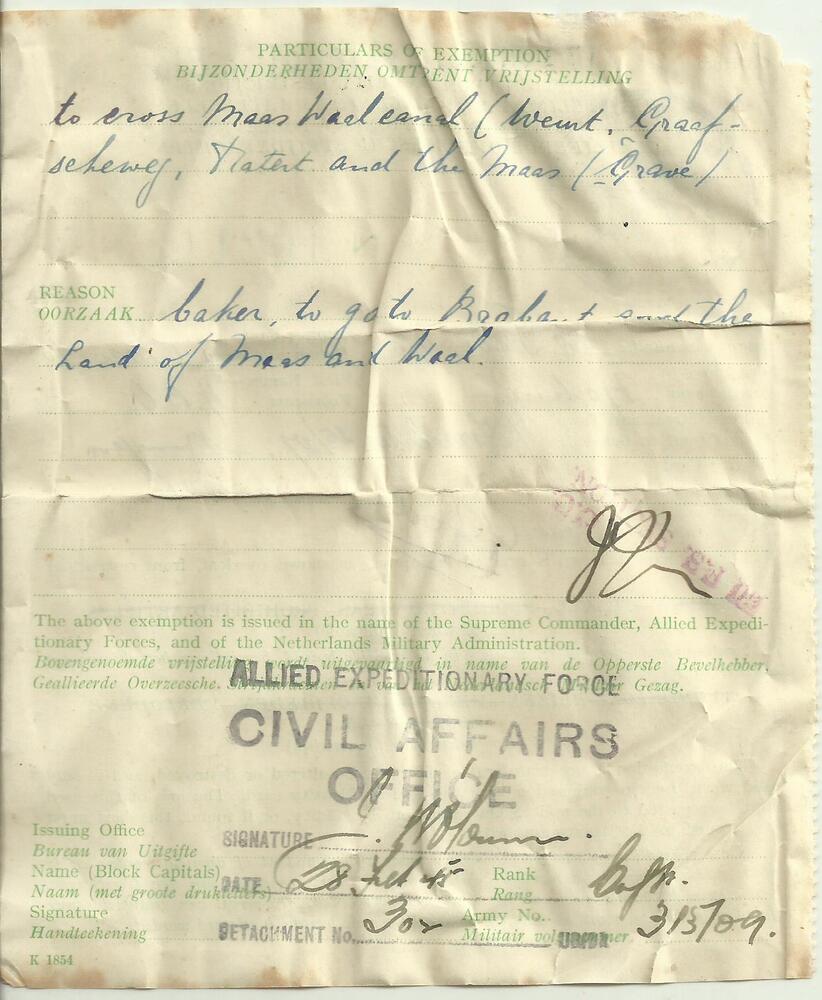 PARTICULARS OF EXEMPTION
BIJZONDERHEDEN OMTRENT VRIJSTELLING
to cross Maas Waalcanal ( Weurt, Graaf-
scheweg, Hatert and the Maas ( Grave )
REASON
OORZAAK baker, to go to Brabant and the
Land of Maas and Waal.
The above exemption is issued in the name of the Supreme Commander, Allied Expedi-
tionary Forces, and of the Netherlands Military Administration.
Bovengenoemde vrijstelling wordt uitgevaardigd in name van de Opperste Bevelhebber,
Geallieerde Overzeesche Gezag.
ALLIED EXPEDITIONARY FORCE
CIVIL AFFAIRS
OFFICE
Issuing Office
Bureau van Uitgifte
SIGNATURE
Name (Block Capitals)
Naam (met groote drukletters)
DATE 28 Feb 45
Rank
Rang
Signature
Handteekening
DETACHMENT No. 302
Army No.
Militair volgnummer 315709.
K 1854